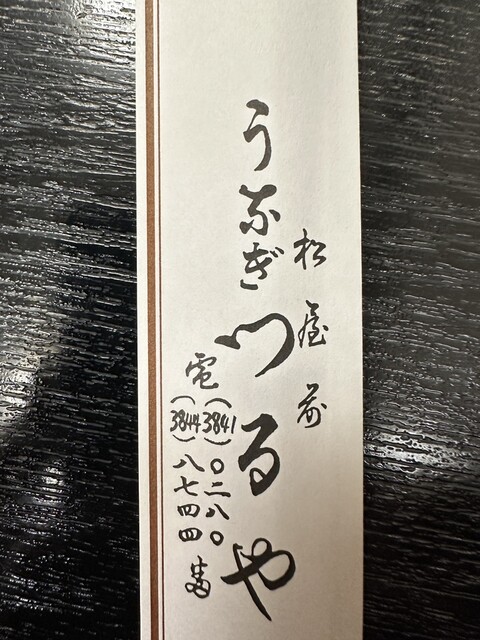 松屋前
うなぎ つるや
電 (3841) 〇二八〇
(3844) 八七四四 番